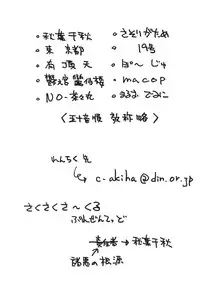 ・秋葉千秋
・さそりがため
・東 京都
・19号
・有頂天
・ぽ〜じゅ
・macop
・NO-茶々丸
・まるま でるこ
(五十音順 敬称略)
れんらく先
c-akiha@din.or.jp
さくさくさ〜くる
ぷれぜんてっど
責任者→秋葉千秋
諸悪の根源